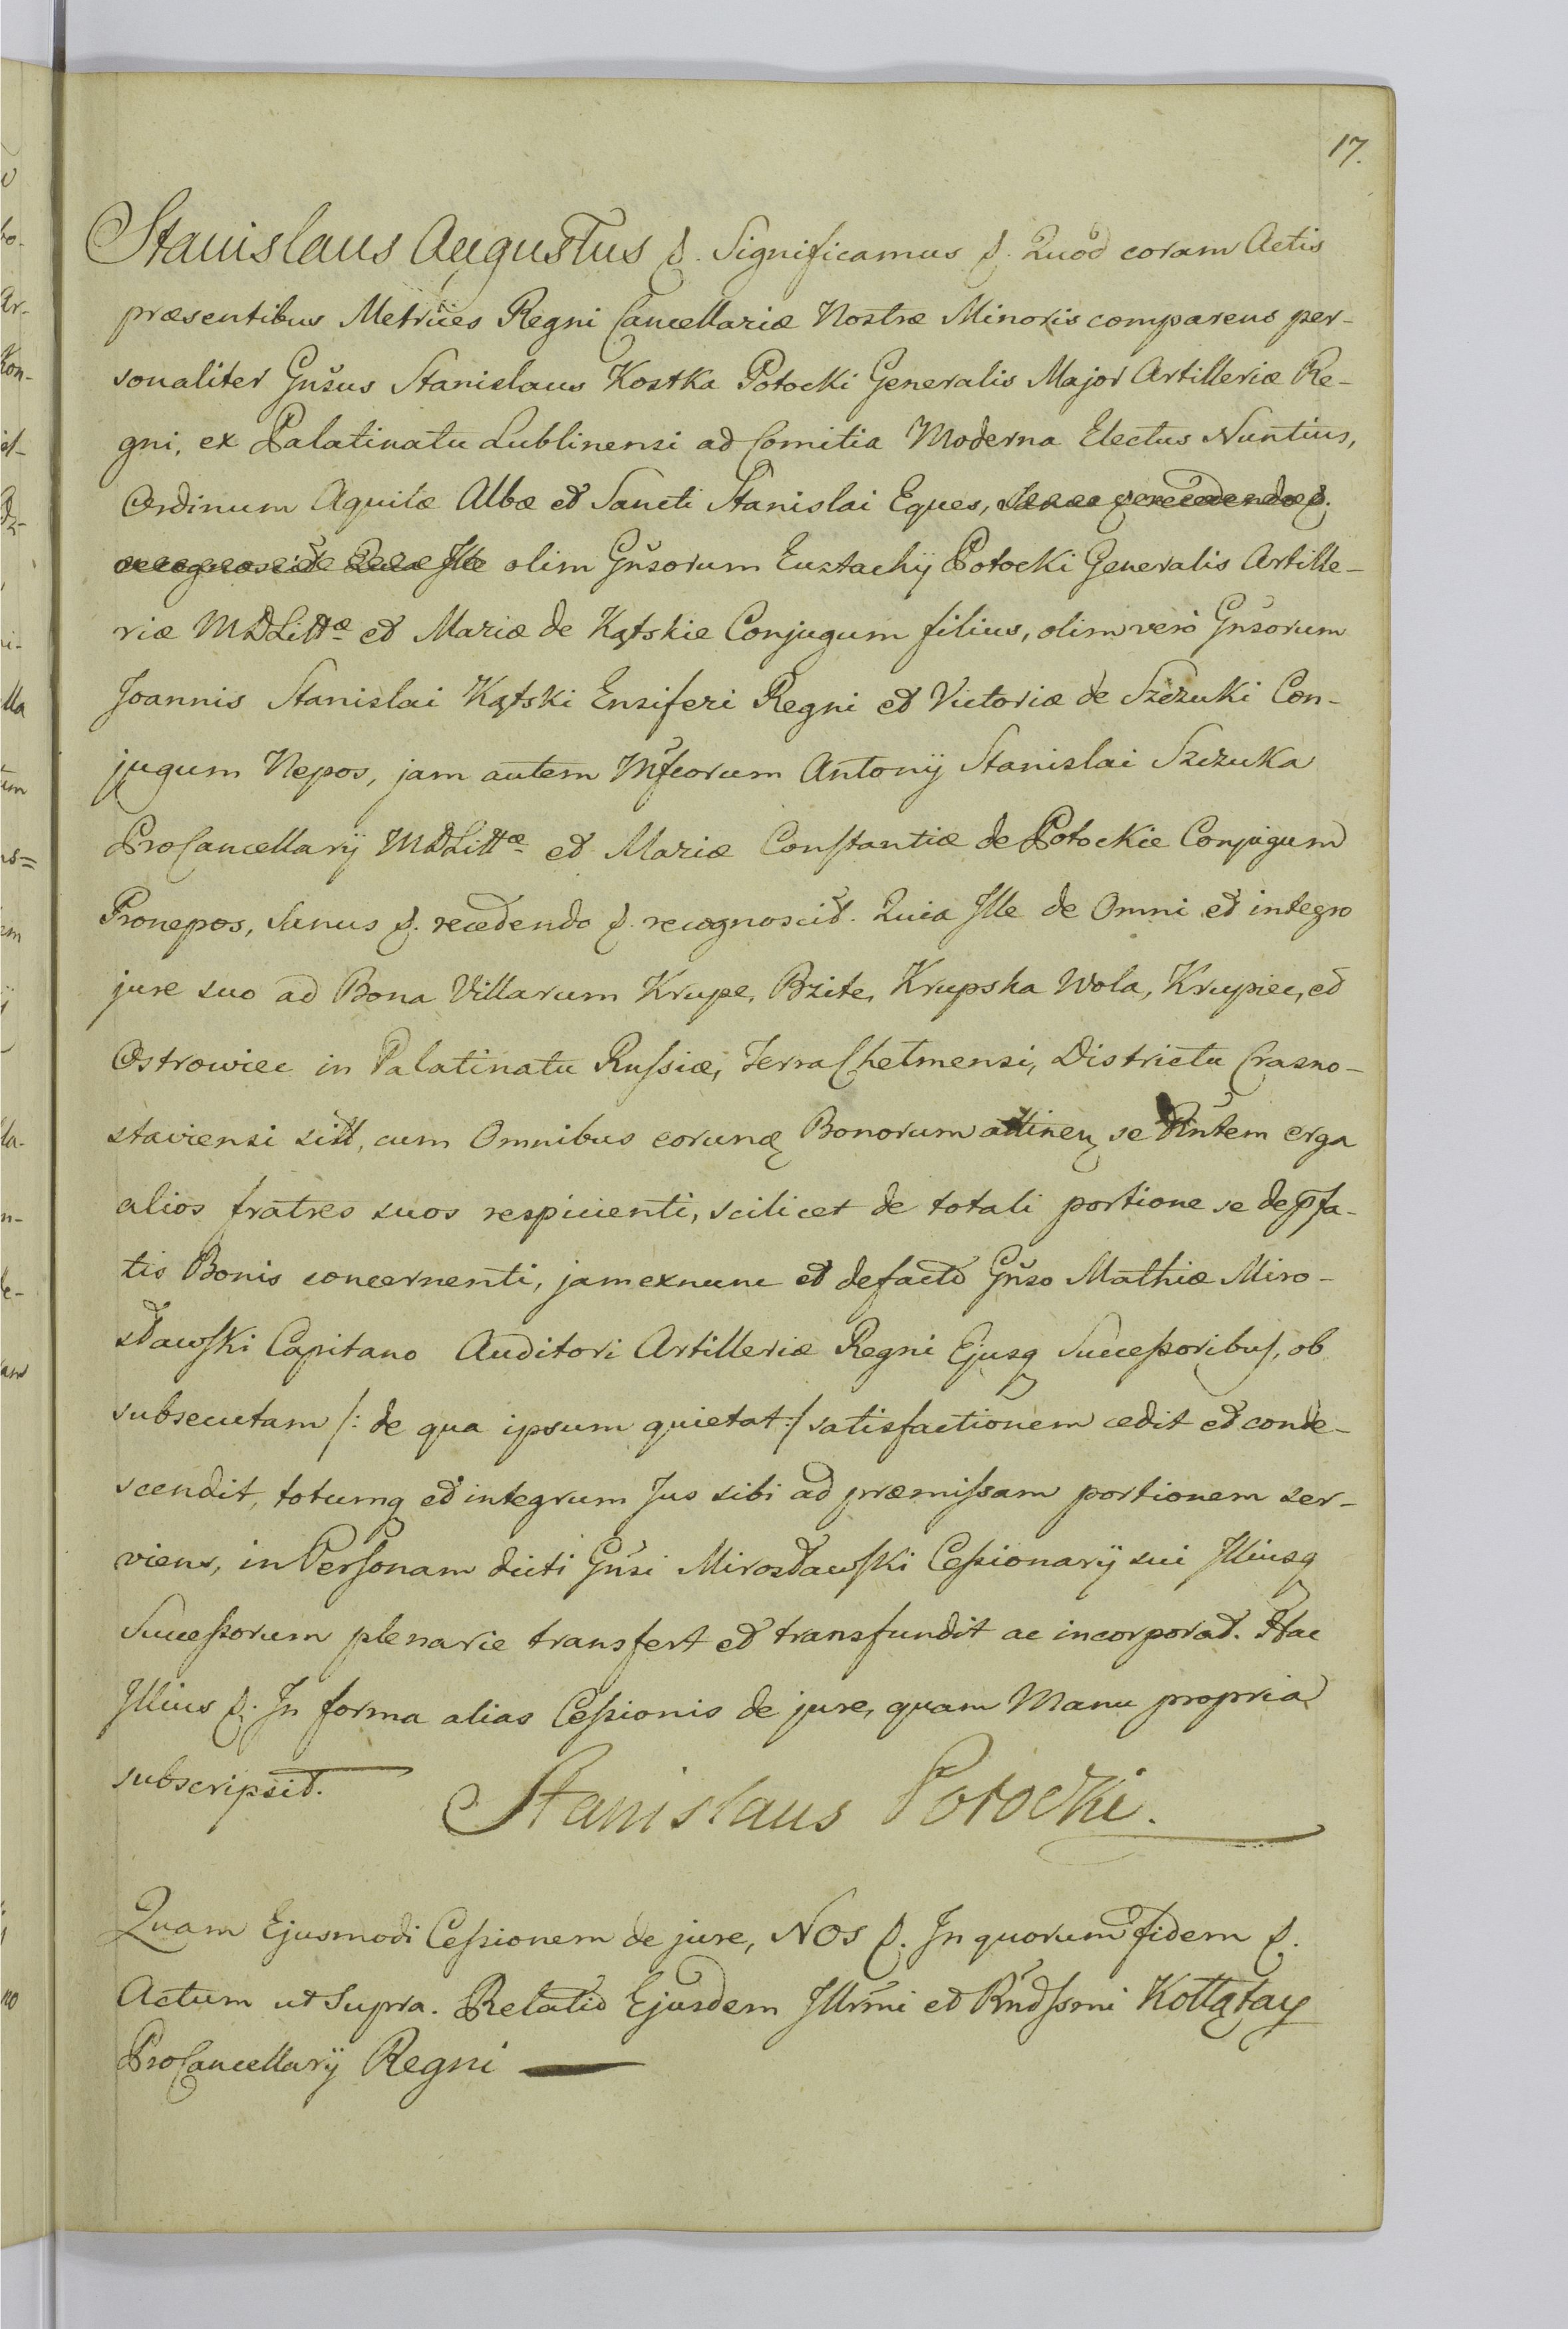 17.
Stanislaus Augustus &. Significamus &. Quod coram Actis
præsentibus Metrices Regni Cancellariæ Nostræ Minoris comparens per-
sonaliter Gnsus Stanislaus Kostka Potocki Generalis Major Artilleriæ Re-
gni, ex Palatinatu Lublinensi ad Comitia Moderna Electus Nuntius,
Ordinum Aquilæ Albæ et Sancti Stanislai Eques, Sanus &. recedendo &.
recognoscit Quia Ille olim Gnsorum Eustachij Potocki Generalis Artille-
riæ MDLittæ et Mariæ de Kątskie Conjugum filius, olim vero Gnsorum
Joannis Stanislai Kątski Ensiferi Regni et Victoriæ de Szczuki Con-
jugum Nepos, jam autem Mfcorum Antonij Stanislai Szczuka
ProCancellarij MDLittæ et Mariæ Constantiæ de Potockie Conjugum
Pronepos, Sanus &. recedendo &. recognoscit. Quia Ille de Omni et integro
jure suo ad Bona Villarum Krupe, Bzite, Krupska Wola, Krupiec, et
Ostrowiec in Palatinatu Russiæ, Terra Chelmensi, Districtu Crasno-
staviensi sitt, cum Omnibus eorund Bonorum attinen se Dntem erga
alios fratres suos respicienti, scilicet de totali portione se de pfa-
tis Bonis concernenti, jam exnunc et defacto Gnso Mathiæ Miro-
sławski Capitano Auditori Artilleriæ Regni Ejusq Successoribus, ob
subsecutam /: de qua ipsum quietat :/ satisfactionem cedit et conde-
scendit, totumq et integrum Jus sibi ad præmissam portionem ser-
viens, in Personam dicti Gnsi Mirosławski Cessionarij sui Illiusq
Successorum plenarie transfert et transfundit ac incorporat. Hac
Illius &. In forma alias Cessionis de jure, quam Manu propria
subscripsit.
Stanislaus Potocki.
Quam Ejusmodi Cessionem de jure, NOS &. In quorum fidem &.
Actum ut Supra. Relatio Ejusdem Illrmi et Rndssmi Kołłątay
ProCancellarij Regni